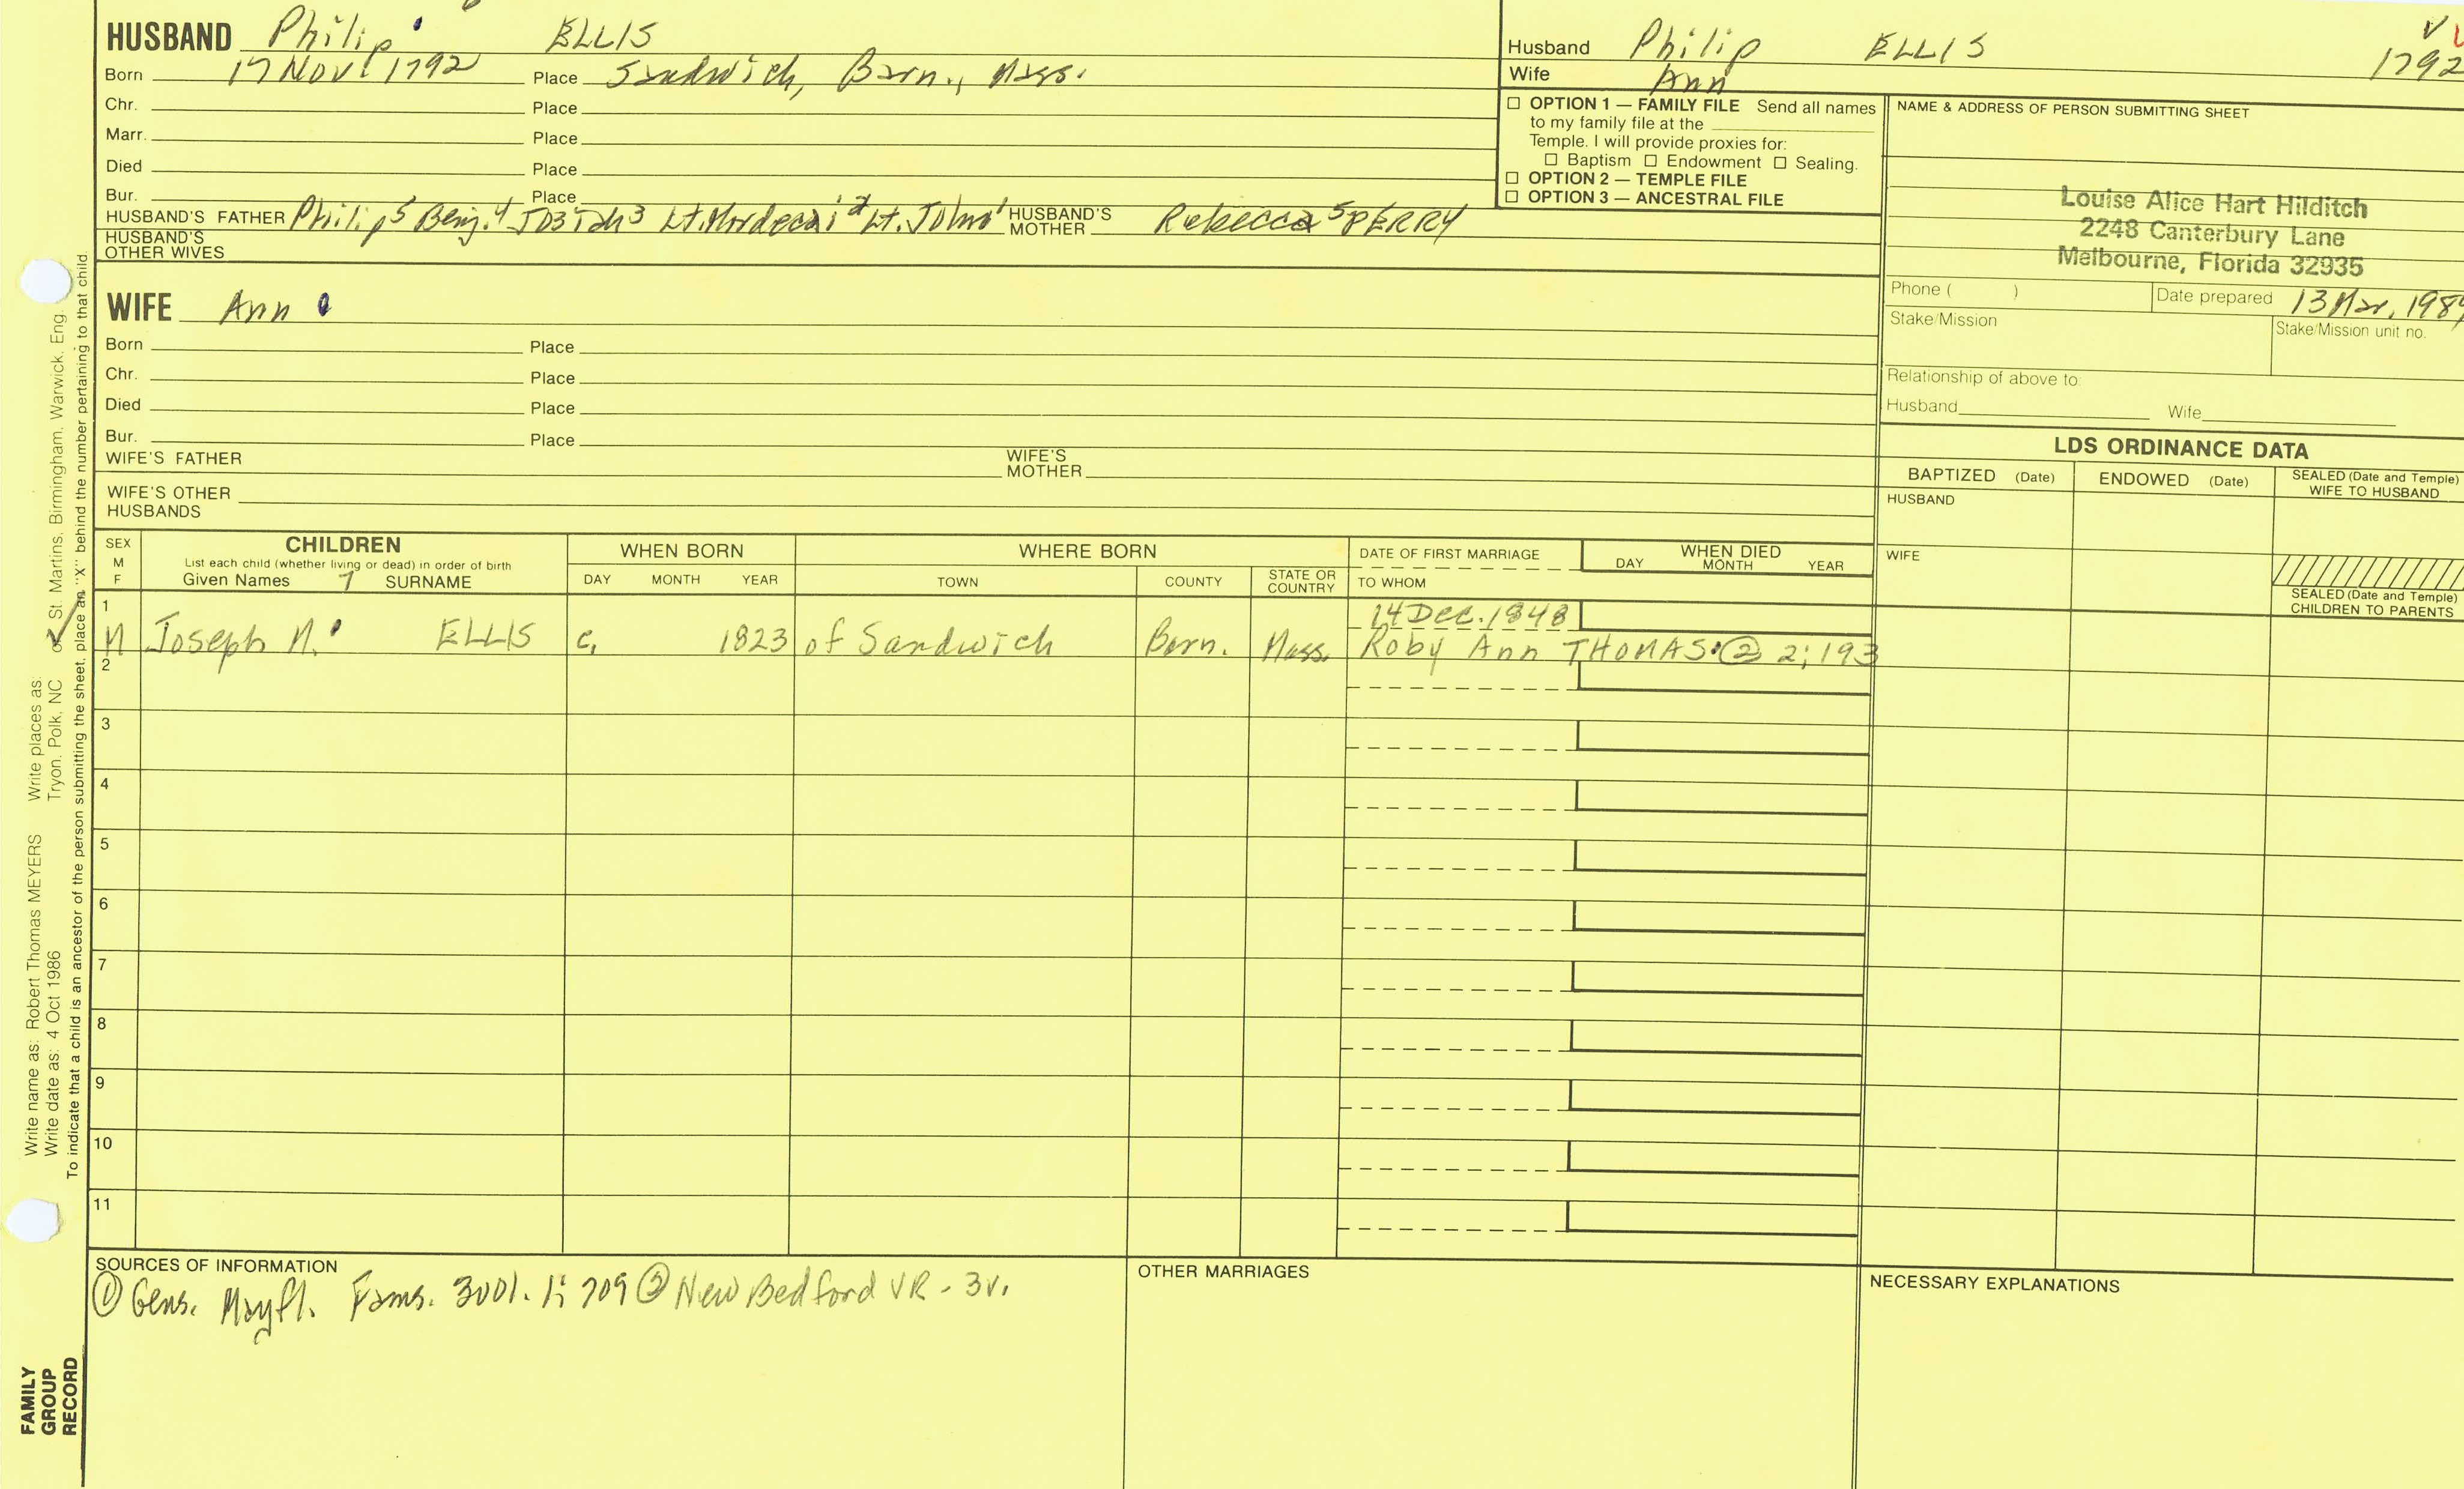 HUSBAND Philip ELLIS
Born 17 Nov. 1792 Place Sandwich, Barn., Mass.
Chr. Place
Marr. Place
Died Place
Bur. Place
HUSBAND'S FATHER Philip5 Benj.4 Josiah3 Lt. Mordecai2 Lt. John1 HUSBAND'S MOTHER Rebecca5 PERRY
HUSBAND'S OTHER WIVES
WIFE Ann
Born Place
Chr. Place
Died Place
Bur. Place
WIFE'S FATHER WIFE'S MOTHER
WIFE'S OTHER HUSBANDS
Husband Philip ELLIS 1792
Wife Ann
☐ OPTION 1 — FAMILY FILE Send all names
to my family file at the
Temple. I will provide proxies for:
☐ Baptism ☐ Endowment ☐ Sealing.
☐ OPTION 2 — TEMPLE FILE
☐ OPTION 3 — ANCESTRAL FILE
NAME & ADDRESS OF PERSON SUBMITTING SHEET
Louise Alice Hart Hilditch
2248 Canterbury Lane
Melbourne, Florida 32935
Phone ( ) Date prepared 13 Mar, 198
Stake/Mission Stake/Mission unit no.
Relationship of above to:
Husband Wife
LDS ORDINANCE DATA
BAPTIZED (Date) ENDOWED (Date) SEALED (Date and Temple) WIFE TO HUSBAND
HUSBAND
WIFE
SEALED (Date and Temple)
CHILDREN TO PARENTS
SEX M F CHILDREN WHEN BORN WHERE BORN DATE OF FIRST MARRIAGE WHEN DIED
List each child (whether living or dead) in order of birth
Given Names 7 SURNAME DAY MONTH YEAR TOWN COUNTY STATE OR COUNTRY TO WHOM DAY MONTH YEAR
1 14 Dec. 1848
M Joseph N. ELLIS c. 1823 of Sandwich Barn. Mass. Roby Ann THOMAS ② 2; 193
2
3
4
5
6
7
8
9
10
11
SOURCES OF INFORMATION
① Gens. Mayfl. Fams. 3vol. 1: 709 ② New Bedford VR - 3v.
OTHER MARRIAGES
NECESSARY EXPLANATIONS
Write name as: Robert Thomas MEYERS Write places as:
Write date as: 4 Oct 1986 Tryon, Polk, NC or St. Martins, Birmingham, Warwick, Eng.
To indicate that a child is an ancestor of the person submitting the sheet, place an "X" behind the number pertaining to that child.
FAMILY
GROUP
RECORD